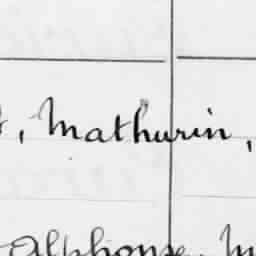 , Mathurin,
Alphonse, M